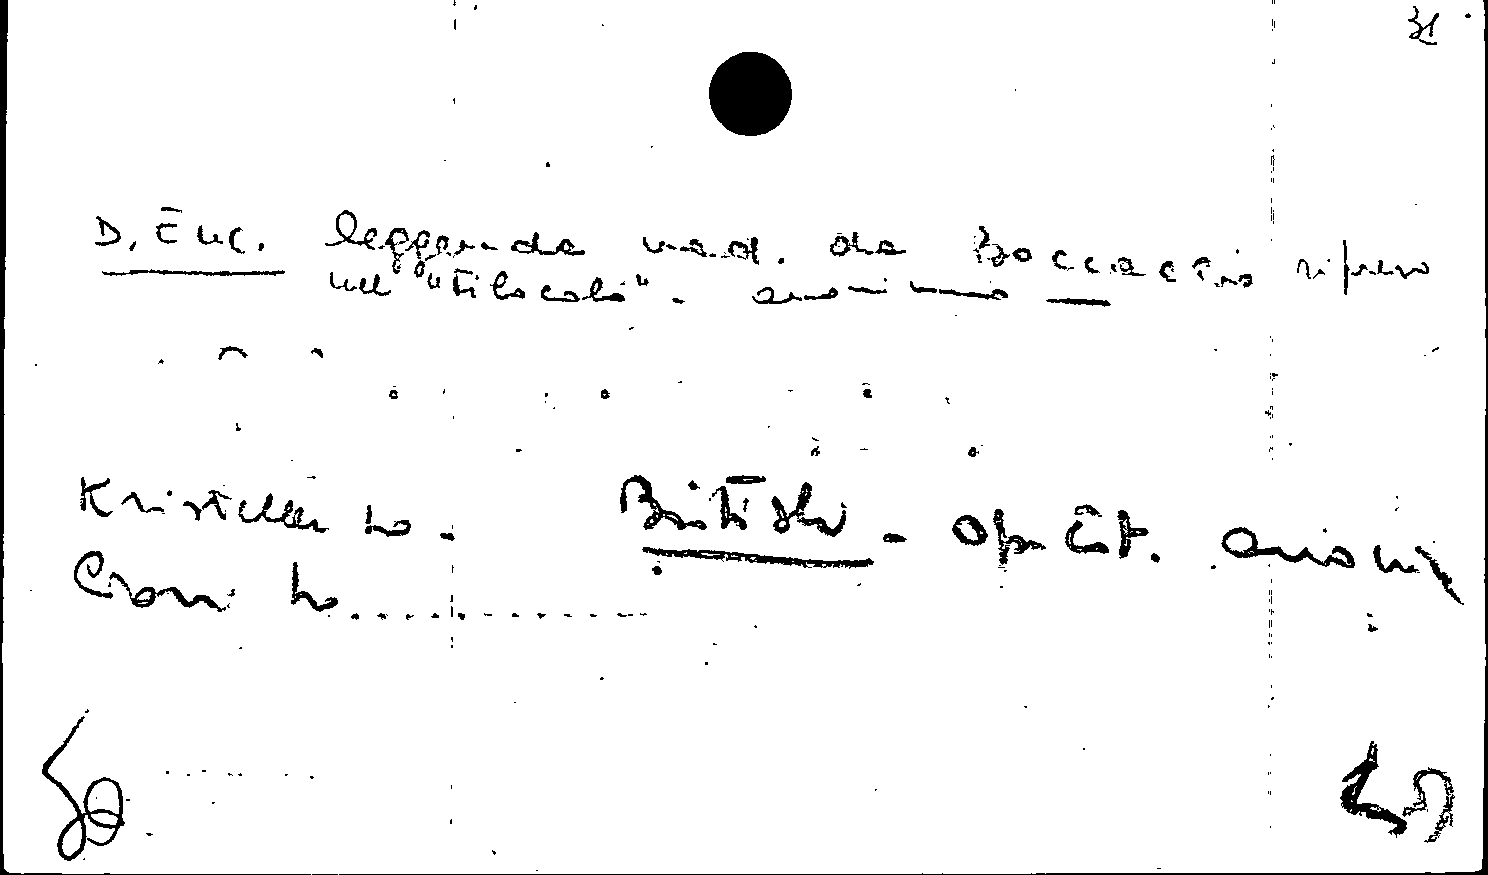 31
D. Enc. leggenda med. da Boccaccio ripreso
nel "Filocolo". anonimo
Kristeller no - British - op. cit. anonim
Cioni no..............